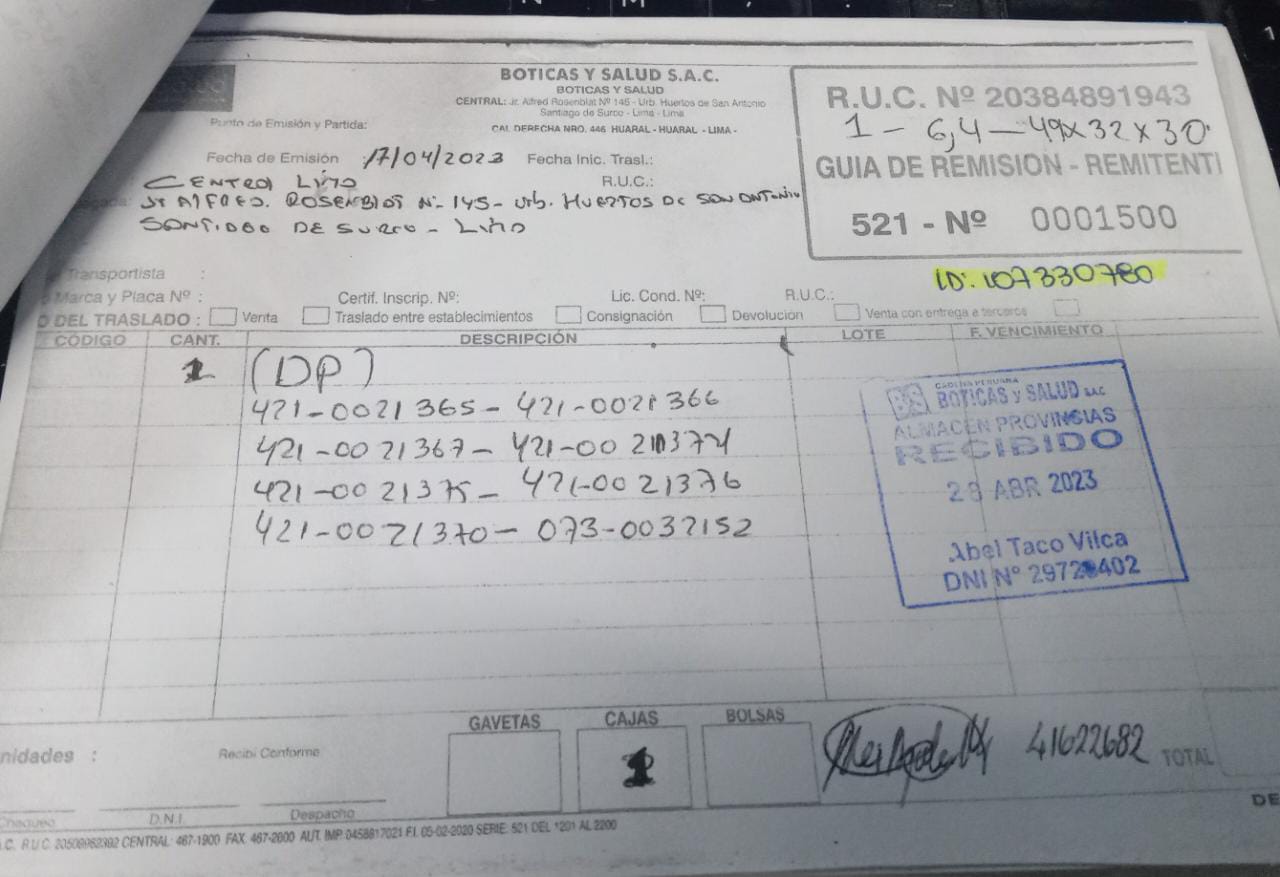 BOTICAS Y SALUD S.A.C.
BOTICAS Y SALUD
CENTRAL: Jr. Alfred Rosenblat Nº 145 - Urb. Huertos de San Antonio
Santiago de Surco - Lima - Lima
CAL DERECHA NRO. 446 HUARAL - HUARAL - LIMA -
Punto de Emisión y Partida:
Fecha de Emisión : 17/04/2023 Fecha Inic. Trasl.:
R.U.C. Nº 20384891943
1 - 6,4 - 49x32x30.
GUIA DE REMISION - REMITENT
521 - Nº 0001500
CENTRAL LIMA
R.U.C.:
Jr ALFRED. ROSENBLAT Nº 145 - Urb. HUERTOS DE SAN ANTONIO
SANTIAGO DE SURCO - LIMA
Transportista :
Marca y Placa Nº : Certif. Inscrip. Nº: Lic. Cond. Nº: R.U.C.:
ID: 107330780
O DEL TRASLADO : Venta Traslado entre establecimientos Consignación Devolución Venta con entrega a terceros
CÓDIGO CANT. DESCRIPCIÓN LOTE F. VENCIMIENTO
1 (DP)
421-0021365 - 421-0021366
421-0021367 - 421-00
421-0021375 - 421-0021376
421-0021370 - 073-0032152
CADENA PERUANA
BS BOTICAS y SALUD SAC
ALMACÉN PROVINCIAS
RECIBIDO
28 ABR 2023
Abel Taco Vilca
DNI Nº
GAVETAS CAJAS BOLSAS
nidades : Recibi Conforme
1
41622682 TOTAL
Chequeo D.N.I. Despacho
DE
.C. R.U.C. 20509962392 CENTRAL: 467-1900 FAX. 467-2600 AUT. IMP. 0458817021 F.I. 05-02-2020 SERIE: 521 DEL 1201 AL 2200